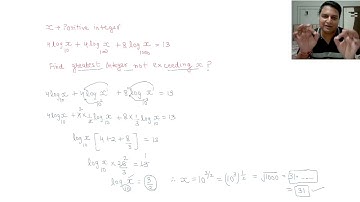 x → Positive integer
4 log₁₀ x + 4 log₁₀₀ x + 8 log₁₀₀₀ x = 13
Find greatest integer not exceeding x ?
4 log₁₀ x + 4 log₁₀² x + 8 log₁₀³ x = 13
4 log₁₀ x + 4 × 1/2 log₁₀ x + 8 × 1/3 log₁₀ x = 13
log₁₀ x [4 + 2 + 8/3] = 13
log₁₀ x × 26/3 = 13
log₁₀ x = 3/2 ∴ x = 10^(3/2) = (10³)^(1/2) = √1000 = 31.-----
= 31